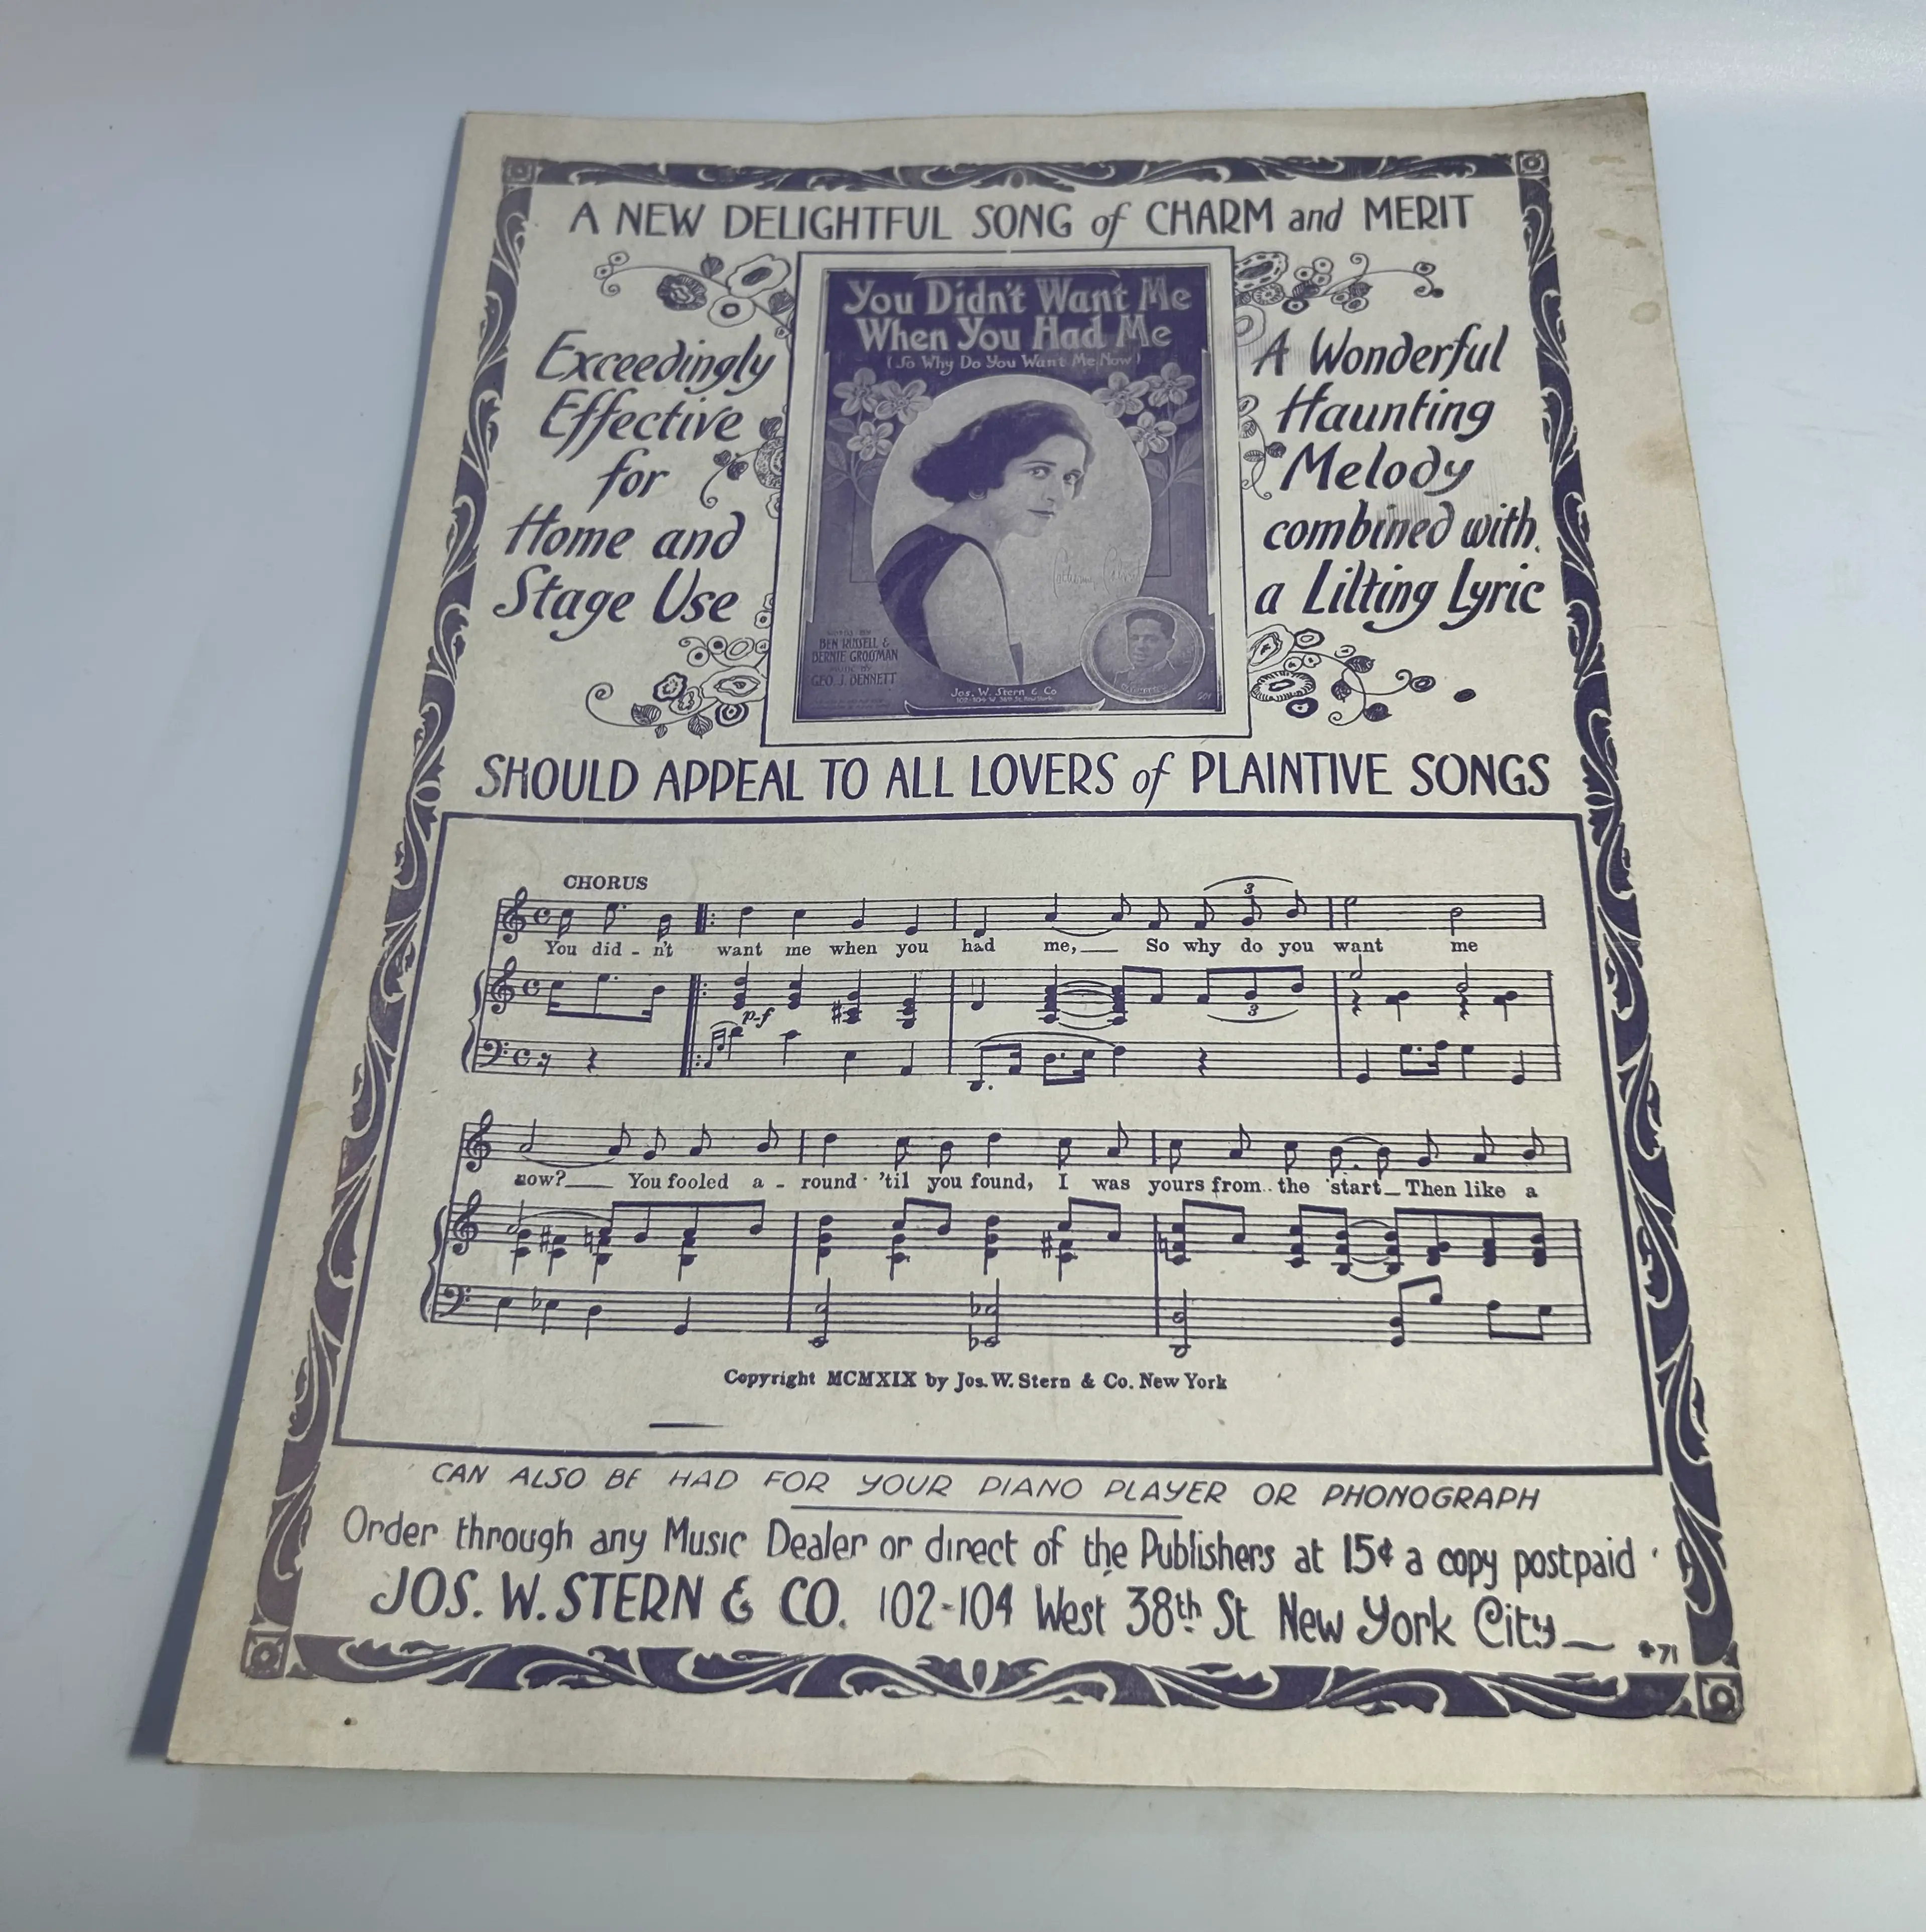 A NEW DELIGHTFUL SONG of CHARM and MERIT
Exceedingly
Effective
for
Home and
Stage Use
You Didn't Want Me
When You Had Me
(So Why Do You Want Me Now)
WORDS BY
BEN RUSSELL &
BERNIE GROSSMAN
MUSIC BY
GEO. J. BENNETT
Jos. W. Stern & Co
102-104 W. 38th St. New York
A Wonderful
Haunting
Melody
combined with
a Lilting Lyric
SHOULD APPEAL TO ALL LOVERS of PLAINTIVE SONGS
CHORUS
3
You did - n't want me when you had me, So why do you want me
p-f
3
now? You fooled a - round 'til you found, I was yours from the start Then like a
Copyright MCMXIX by Jos. W. Stern & Co. New York
CAN ALSO BE HAD FOR YOUR PIANO PLAYER OR PHONOGRAPH
Order through any Music Dealer or direct of the Publishers at 15¢ a copy postpaid
JOS. W. STERN & CO. 102-104 West 38th St New York City
71